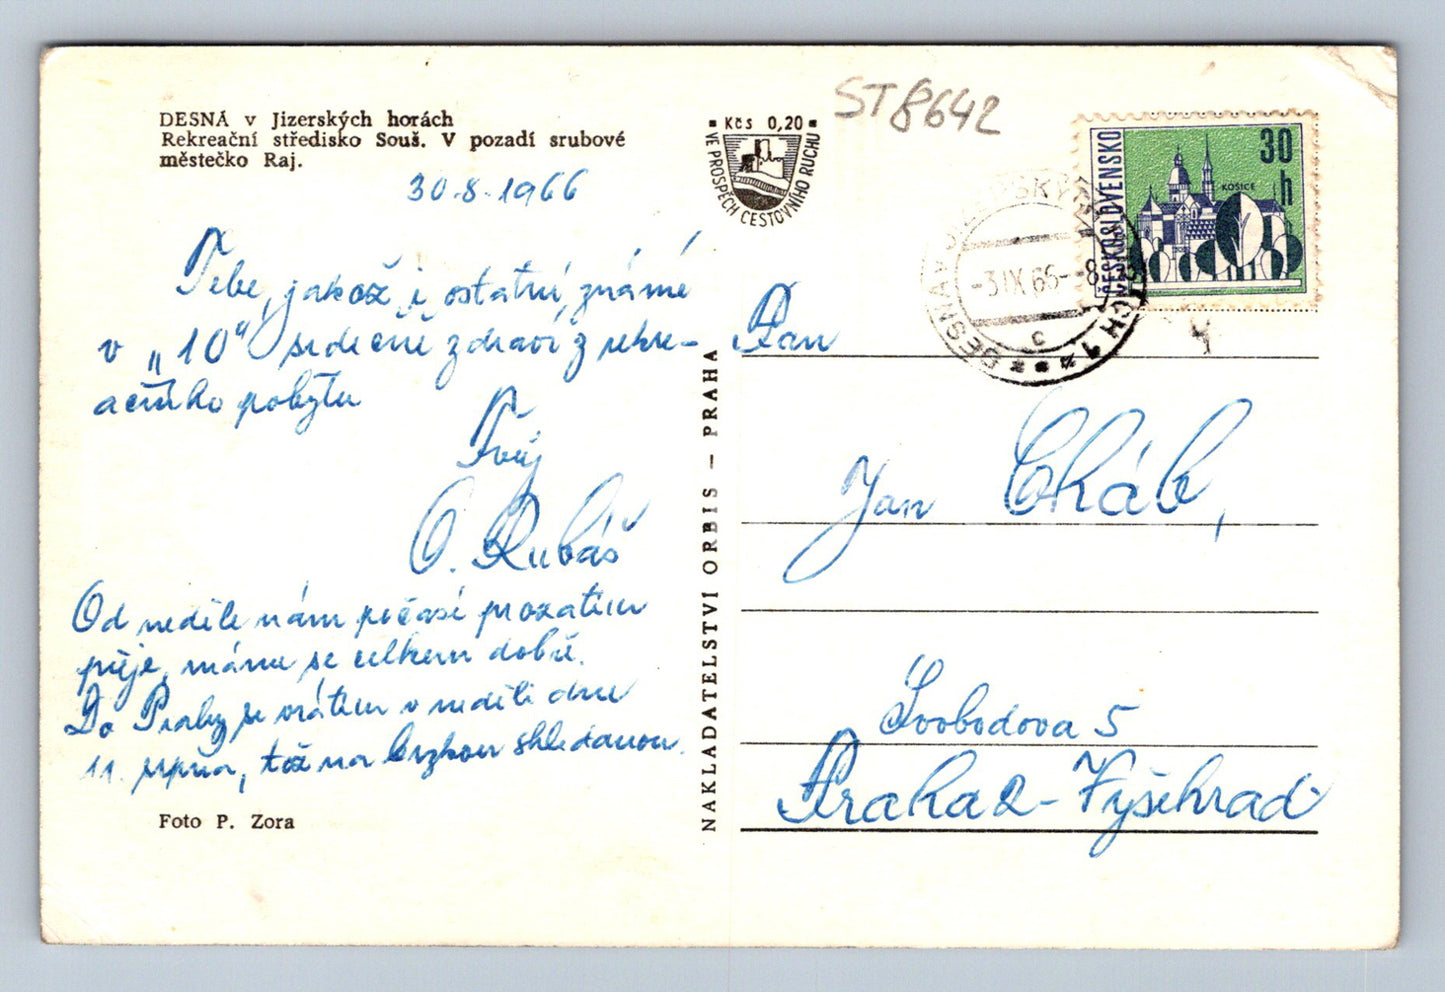 DESNÁ v Jizerských horách
Rekreační středisko Souš. V pozadí srubové
městečko Raj.
30.8.1966
Tebe, jakož i ostatní známé
v „10“ srdečně zdraví z rekre-
ačního pobytu
Tvůj
O. Rubáš
Od neděle nám počasí prozatím
přeje, máme se celkem dobře.
Do Prahy se vrátím v neděli dne
11. srpna, tož na brzkou shledanou.
Foto P. Zora
NAKLADATELSTVÍ ORBIS – PRAHA
Kčs 0,20
VE PROSPĚCH CESTOVNÍHO RUCHU
ST8642
ČESKOSLOVENSKO
30
h
KOŠICE
DESNÁ
-3.IX.66--8
CH 1
c
Pan
Jan Cháb,
Svobodova 5
Praha 2 - Vyšehrad